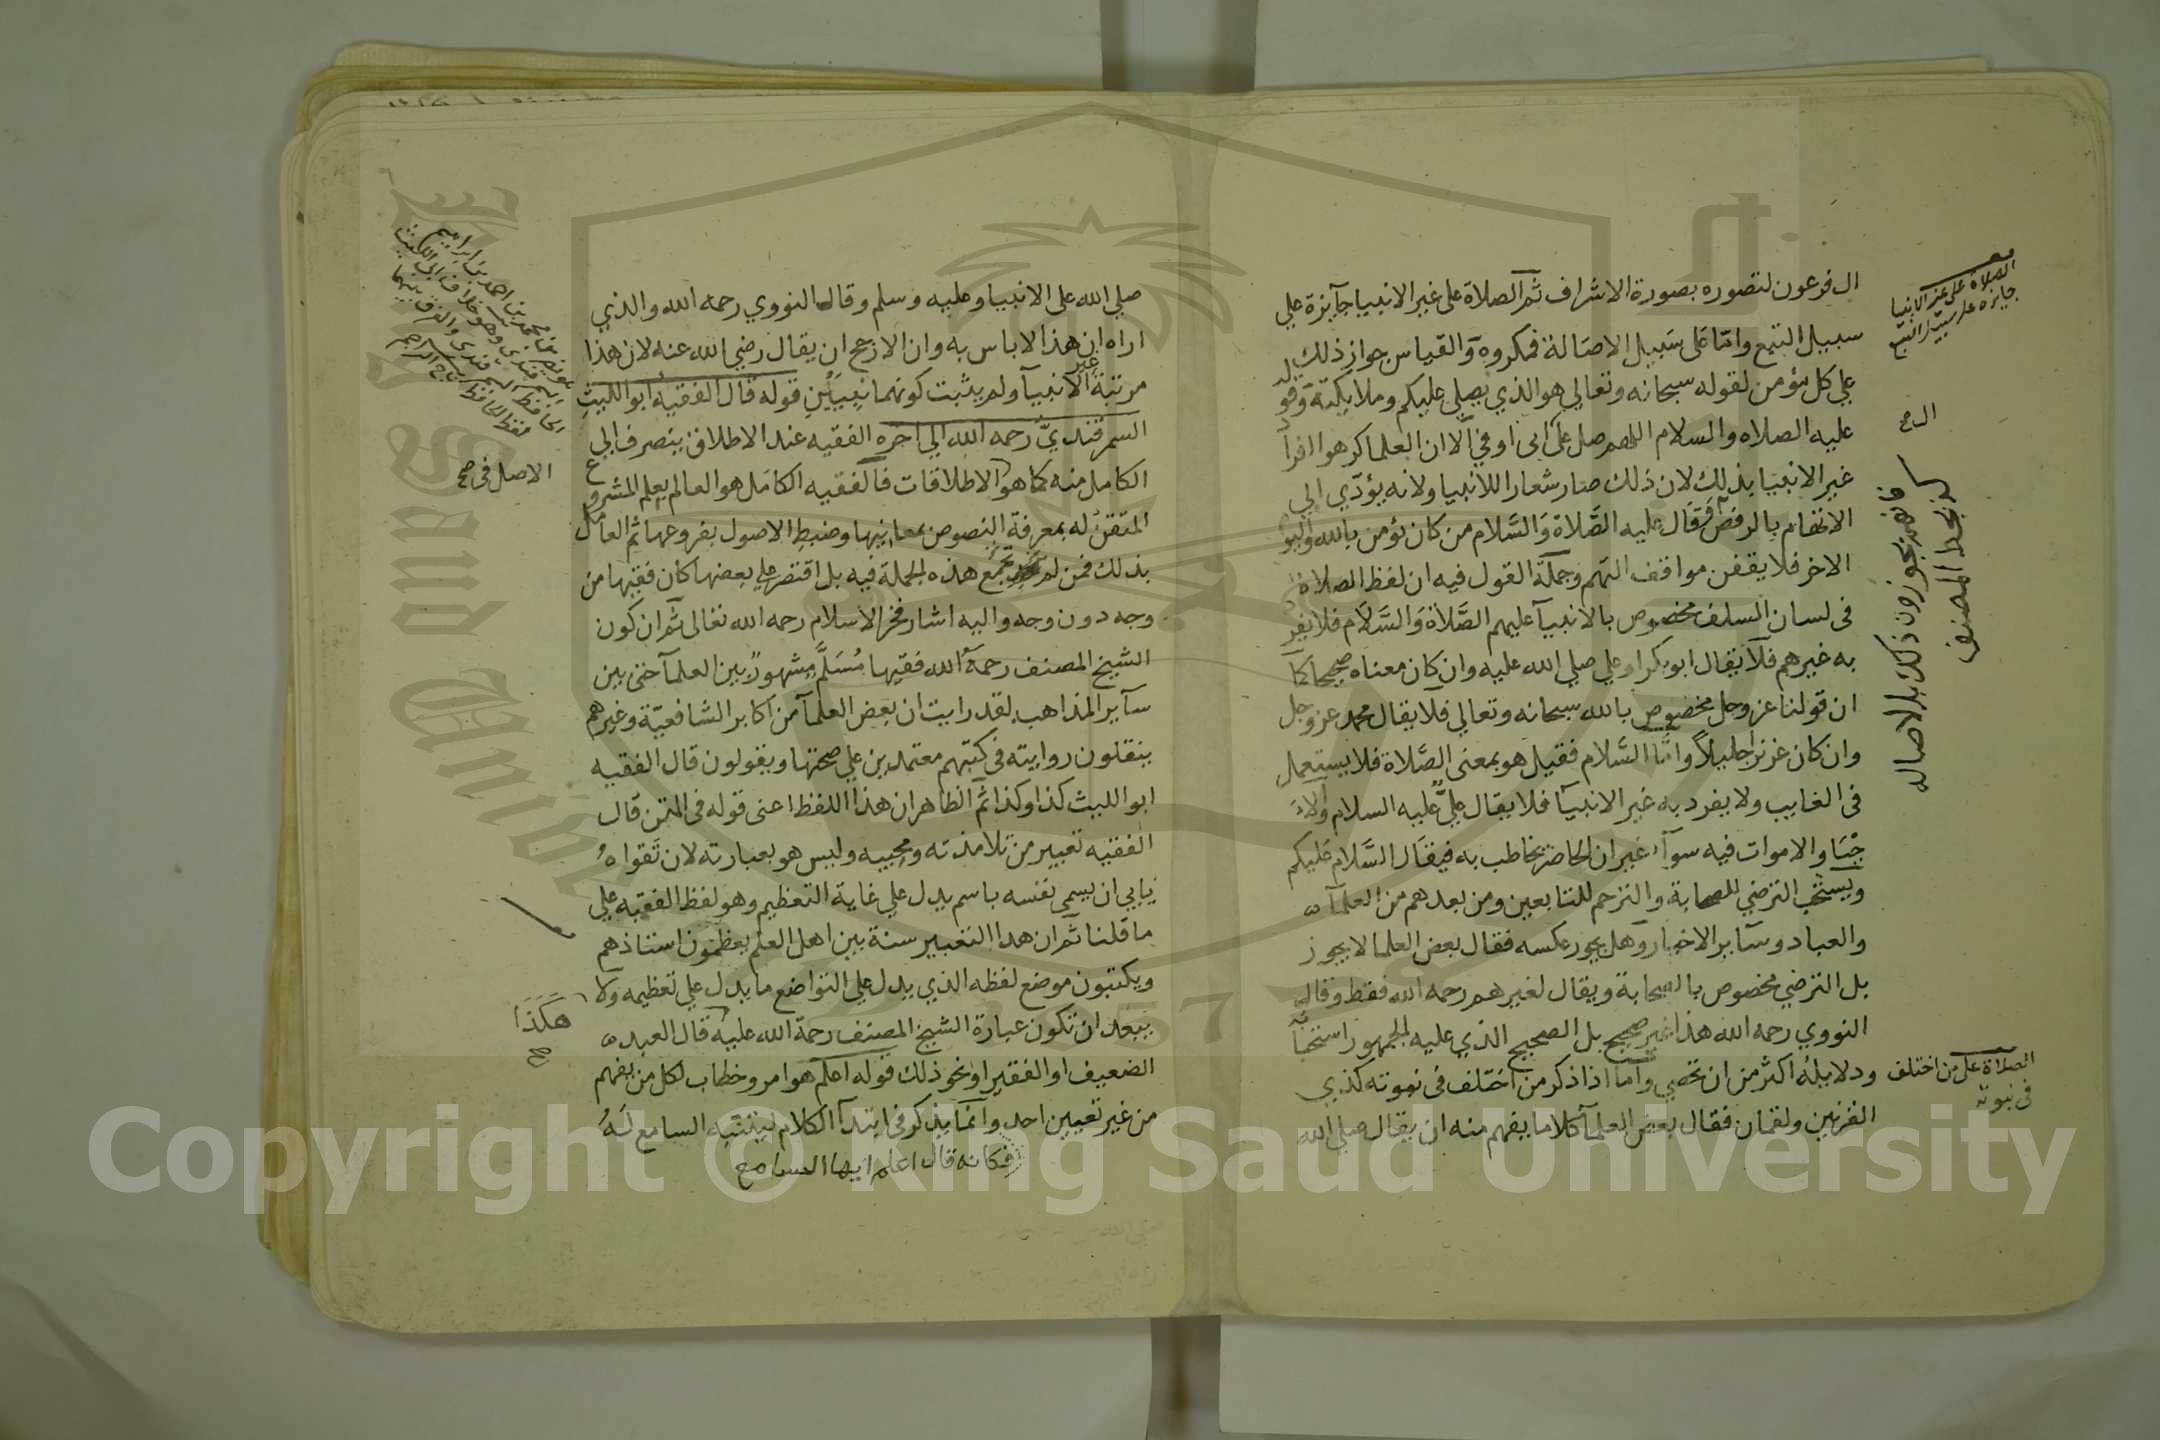 ال فرعون لتصوره بصورة الاشراف ثم الصلاة على غير الانبيا جآيزة علي
سبيل التبع واما على سبيل الاصالة فمكروه والقياس جواز ذلك
علي كل مؤمن لقوله سبحانه وتعالي هو الذي يصلي عليكم وملايكته وقوله
عليه الصلاه والسلام اللهم صل على ابى اوفي الا ان العلما كرهوا افراد
غير الانبيا بذلك لان ذلك صار شعارا للانبيا ولانه يؤدي الي
الاتهام بالرفض وقال عليه الصلاة والسلام من كان يؤمن بالله واليوم
الاخر فلا يقفن مواقف التهم وجملة القول فيه ان لفظ الصلاة
فى لسان السلف مخصوص بالانبيآ عليهم الصلاة والسلام فلا يفرد
به غيرهم فلا يقال ابو بكر او علي صلي الله عليه وان كان معناه صحيحا كما
ان قولنا عز وجل مخصوص بالله سبحانه وتعالي فلا يقال محمد عز وجل
وان كان عزيزا جليلا واما السلام فقيل هو بمعنى الصلاة فلا يستعمل
فى الغايب ولا يفرد به غير الانبيآ فلا يقال علي عليه السلام والاحيا
والاموات فيه سوآء غير ان الحاضر يخاطب به فيقال السلام عليكم
ويستحب الترضي للصحابة والترحم للتابعين ومن بعدهم من العلمآ
والعباد وسآير الاخيار وهل يجوز عكسه فقال بعض العلما لا يجوز
بل الترضي مخصوص بالصحابة ويقال لغيرهم رحمه الله فقط وقال
النووي رحمه الله هذا غير صحيح بل الصحيح الذي عليه الجمهور استحبابه
ودلايله اكثر من ان تحصي واما اذا ذكر من اختلف فى نبوته كذي
القرنين ولقمان فقال بعض العلمآ كلاما يفهم منه ان يقال صلي الله
الصلاة على غير الانبيا
جايزه على سبيل التبع
لا بخط المصنف
الصلاة على من اختلف
فى نبوته
صلي الله على الانبيا وعليه وسلم وقال النووي رحمه الله والذي
اراه ان هذا لا باس به وان الارجح ان يقال رضي الله عنه لان هذا
مرتبة غير الانبيآ ولم يثبت كونهما نبيين قوله قال الفقيه ابو الليث
السمرقندي رحمه الله الي اخره الفقيه عند الاطلاق ينصرف الي
الكامل منه كما هو الاطلاقات فالفقيه الكامل هو العالم بعلم المشروع
المتقن له بمعرفة النصوص بمعانيها وضبط الاصول بفروعها ثم العامل
بذلك فمن لم يجمع هذه الجملة فيه بل اقتصر علي بعضها كان فقيها من
وجه دون وجه واليه اشار فخر الاسلام رحمه الله تعالى ثم ان كون
الشيخ المصنف رحمه الله فقيها مسلم مشهور بين العلمآ حتى بين
سآير المذاهب لقد رايت ان بعض العلمآ من اكابر الشافعية وغيرهم
ينقلون روايته فى كتبهم معتمدين علي صحتها ويقولون قال الفقيه
ابو الليث كذا وكذا ثم الظاهر ان هذا اللفظ اعنى قوله فى المتن قال
الفقيه تعبير من تلامذته ومحبيه وليس هو بعبارته لان تقواه
يابي ان يسمى نفسه باسم يدل علي غاية التعظيم وهو لفظ الفقيه علي
ما قلنا ثم ان هدا التعبير سنة بين اهل العلم يعظمون استاذهم
ويكتبون موضع لفظه الذي يدل علي التواضع ما يدل علي تعظيمه ولا
يبعد ان تكون عبارة الشيخ المصنف رحمة الله عليه قال العبد
الضعيف او الفقير او نحو ذلك قوله اعلم هو امر وخطاب لكل من يفهم
من غير تعيين احد وانما يذكر فى ابتدآ الكلام ليتنبه السامع له
فكانه قال اعلم ايها السامع
الاصل فى صح
هكذا
صح
Copyright © King Saud University